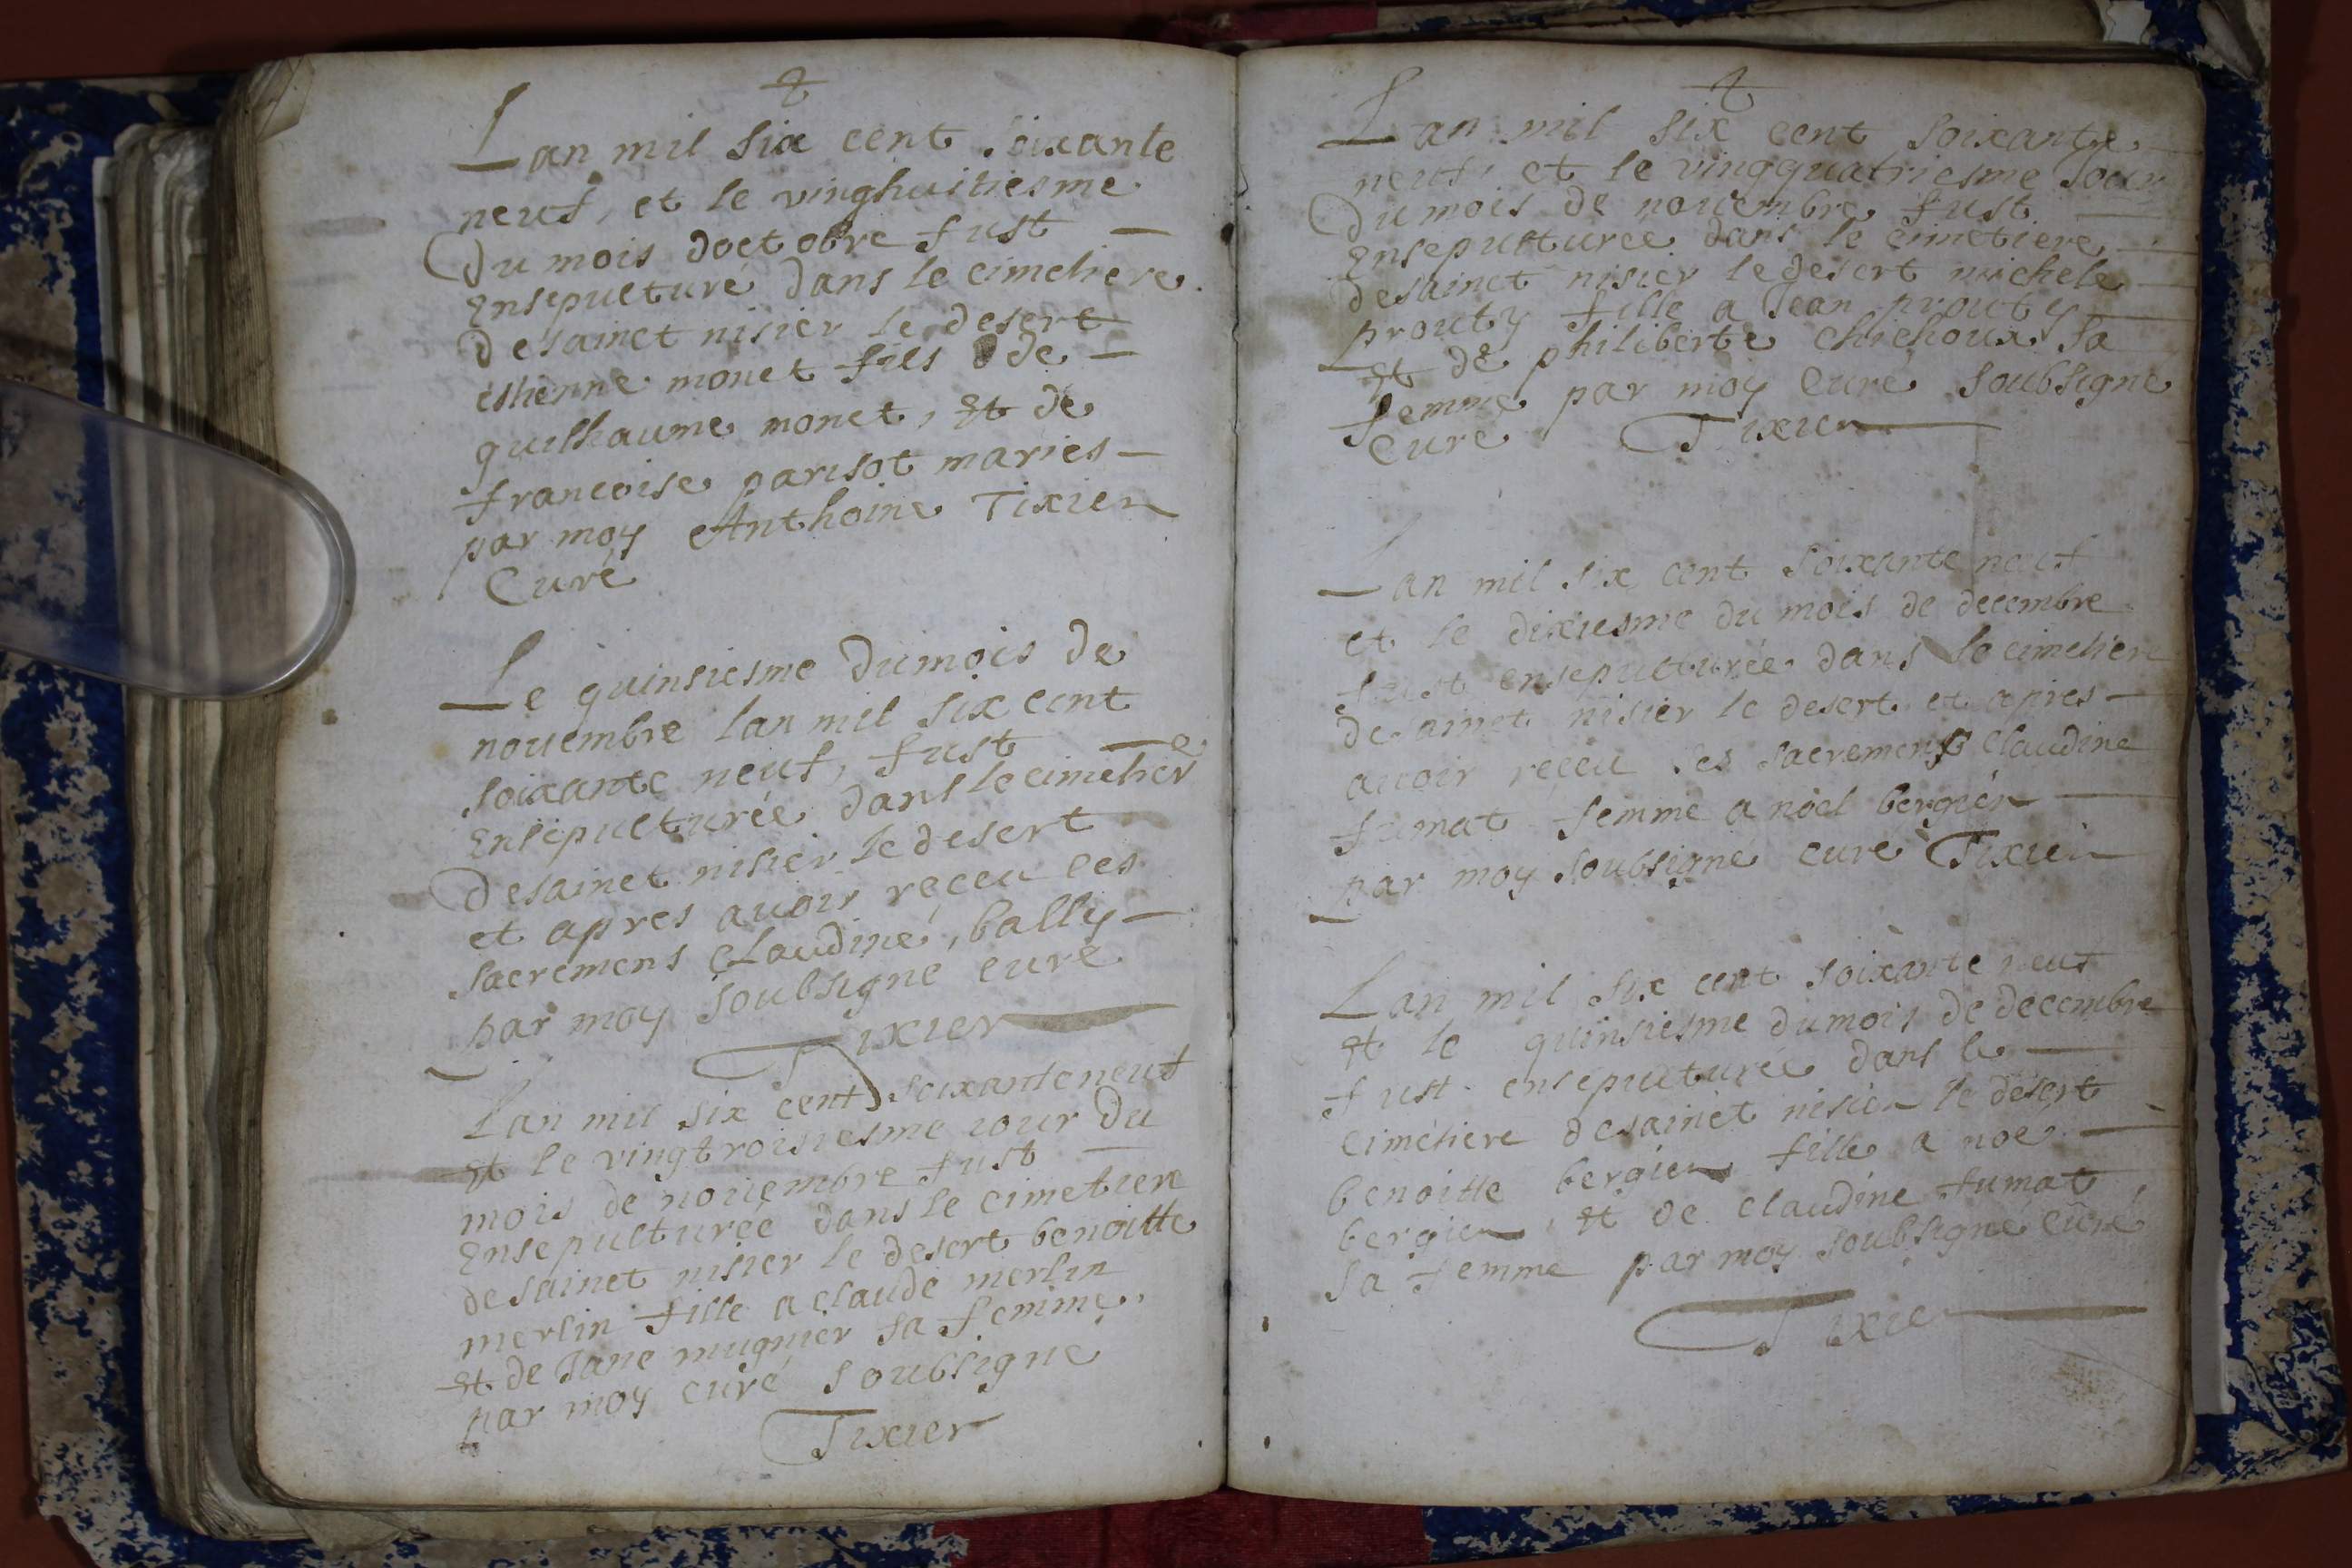 Lan mil six cent soixante
neuf, et le vinghuitiesme
Du mois doctobre fust
Ensepulturé dans le cimetiere
Desainct nisier le desert
estienne monet fils de
guilhaume monet, Et de
francoise parisot maries
par moy Anthoine Tixier
Curé
Le quinsiesme Dumois de
nouembre lan mil six cent
soixante neuf, fust
Ensepulturée dans le cimetiere
Desainct nisier le desert
et apres auoir receu les
sacremens Claudine, bally
par moy soubsigne curé
Tixier
Lan mil six cent soixante neuf
Et le vingtroisiesme iour du
mois de nouembre fust
Ensepulturée dans le cimetiere
desainct nisier le desert benoitte
merlin fille a claude merlin
Et de Jane mugnier sa femme,
par moy curé soubsigne
Tixier
Lan mil six cent soixante
neuf, et le vingquatriesme Jour
Du mois de nouembre fust
Ensepulturee dans le cimetiere
desainct nisier le desert michele
prouty fille a Jean prouty
Et de philiberte chichoux sa
femme par moy Curé soubsigne
Curé Tixier
Lan mil six cent soixante neuf
et le dixiesme du mois de decembre
fust ensepulturée dans le cimetiere
desainct nisier le desert et apres
auoir receu les sacremens Claudine
fumat femme a noel bergier
par moy soubsigné curé Tixier
Lan mil six cent soixante neuf
Et le quinsiesme dumois de decembre
fust ensepulturée dans le
cimétiere desainct nisier le désert
benoitte bergier fille a noe
bergier, Et de claudine fumat
sa femme par moy soubsigne Curé
Tixier